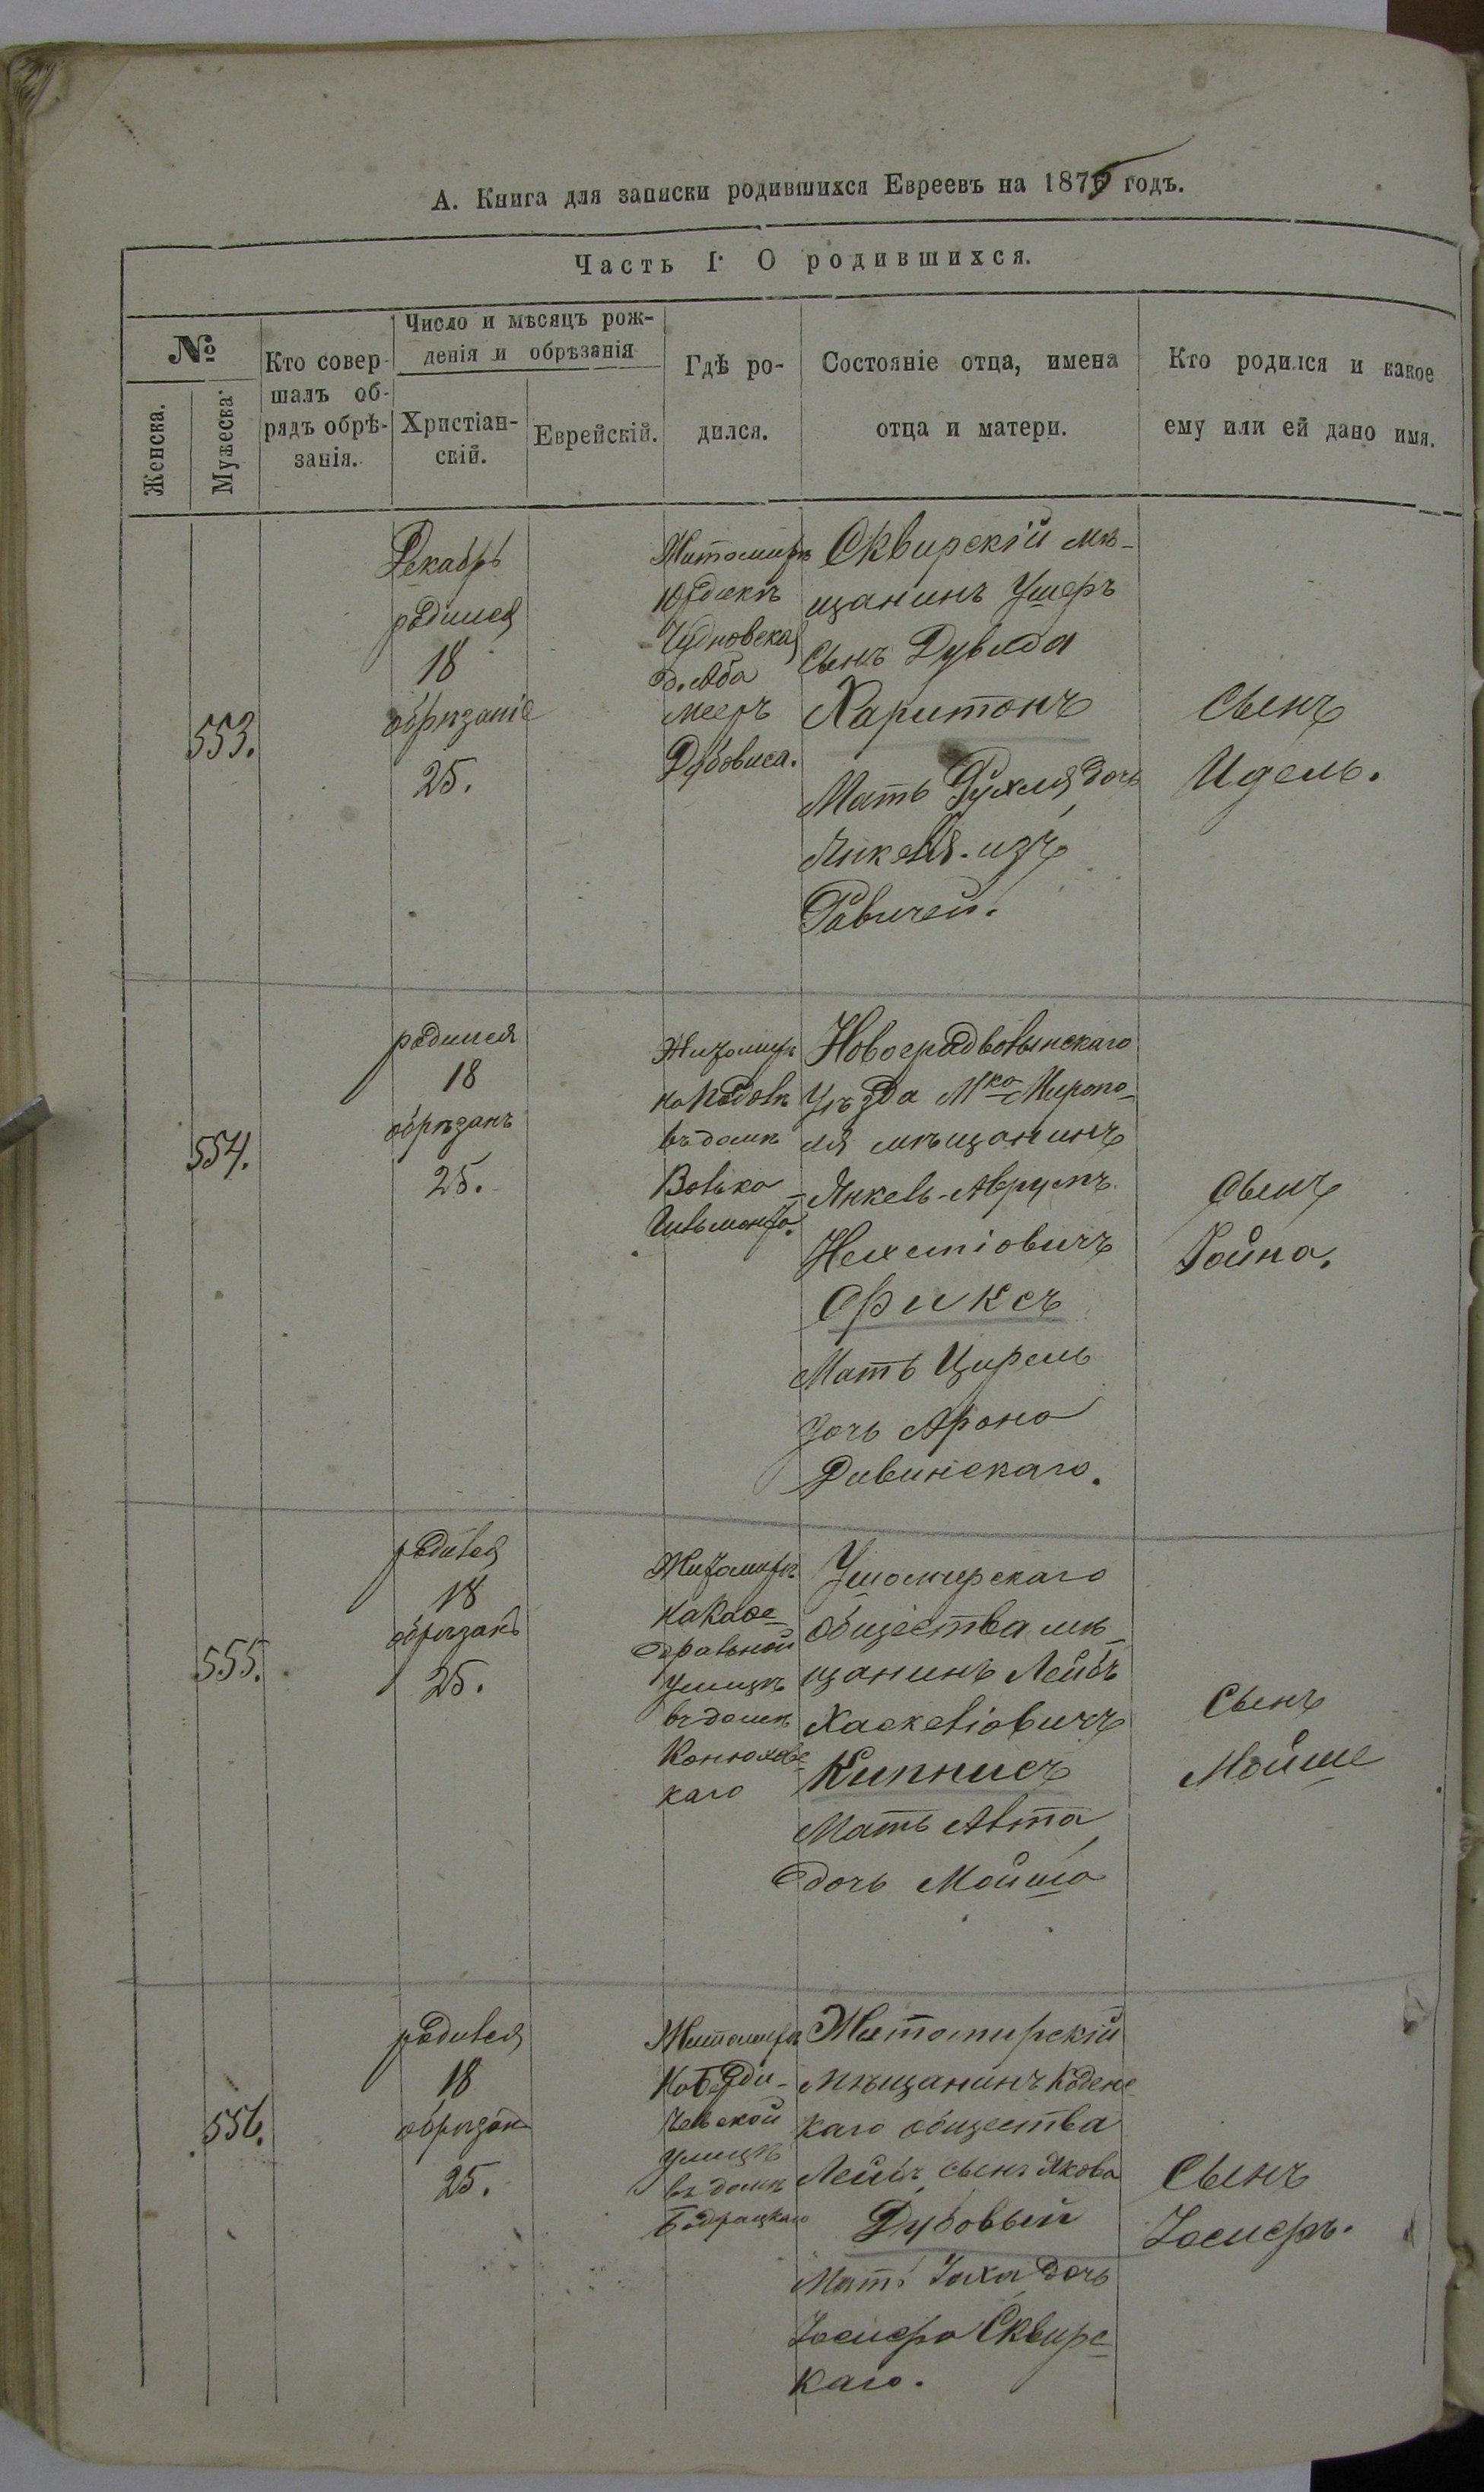 А. Книга для записки родившихся Евреевъ на 1875 годъ.
Часть I. О родившихся.
№
Женска.
Мужеска.
Кто совер-
шалъ об-
рядъ обрѣ-
занія.
Число и мѣсяцъ рож-
денія и обрѣзанія
Христіан-
скій.
Еврейскій.
Гдѣ ро-
дился.
Состояніе отца, имена
отца и матери.
Кто родился и какое
ему или ей дано имя.
553.
Декабрь
родился
18
обрѣзаніе
25.
Житомиръ
Чудновская
д. Аба
Мееръ
Дубовиса.
Сквирскій мѣ-
щанинъ Ушеръ
сынъ Дувида
Харитонъ
Мать Рухля, дочь
Янкеля. изъ
Равичей.
Сынъ
Идель.
554.
родился
18
обрѣзанъ
25.
Житомиръ
на Подолѣ
въ домѣ
Волька
Новоградволынскаго
Уѣзда Мка Миропо-
ля мѣщанинъ
Янкель-Аврумъ
Нехеміовичъ
Фиксъ
Мать Цирель
дочь Арона
Дивинскаго.
Сынъ
Іойна.
555.
родился
18
обрѣзанъ
25.
Житомиръ
на Кафе-
дральной
улицѣ
въ домѣ
Конюховс-
каго
Ушомирскаго
общества мѣ-
щанинъ Лейбъ
Хаскеліовичъ
Кипнисъ
Мать Алта
дочь Мойша
Сынъ
Мойше
556.
родился
18
обрѣзан
25.
Житомиръ
на Берди-
чевской
улицѣ
въ домѣ
Житомирскій
мѣщанинъ Коденс-
каго общества
Лейбъ сынъ Якова
Дубовый
Мать Хаха дочь
Іосифа Сквирс-
каго.
Сынъ
Іосифъ.